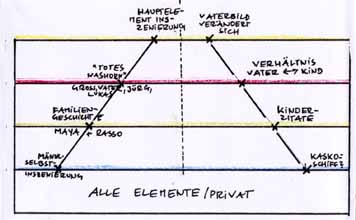 HAUPTELE-
MENT INS-
ZENIERUNG
VATERBILD
VERÄNDERT
SICH
"TOTES
NASHORN"
GROSSVATER, JÜRG,
LUKAS
VERHÄLTNIS
VATER ↔ KIND
FAMILIEN-
GESCHICHTE
MAYA + RASSO
KINDER-
ZITATE
SELBST-
INSZENIERUNG
KASKO-
SCHIFF?
ALLE ELEMENTE/PRIVAT